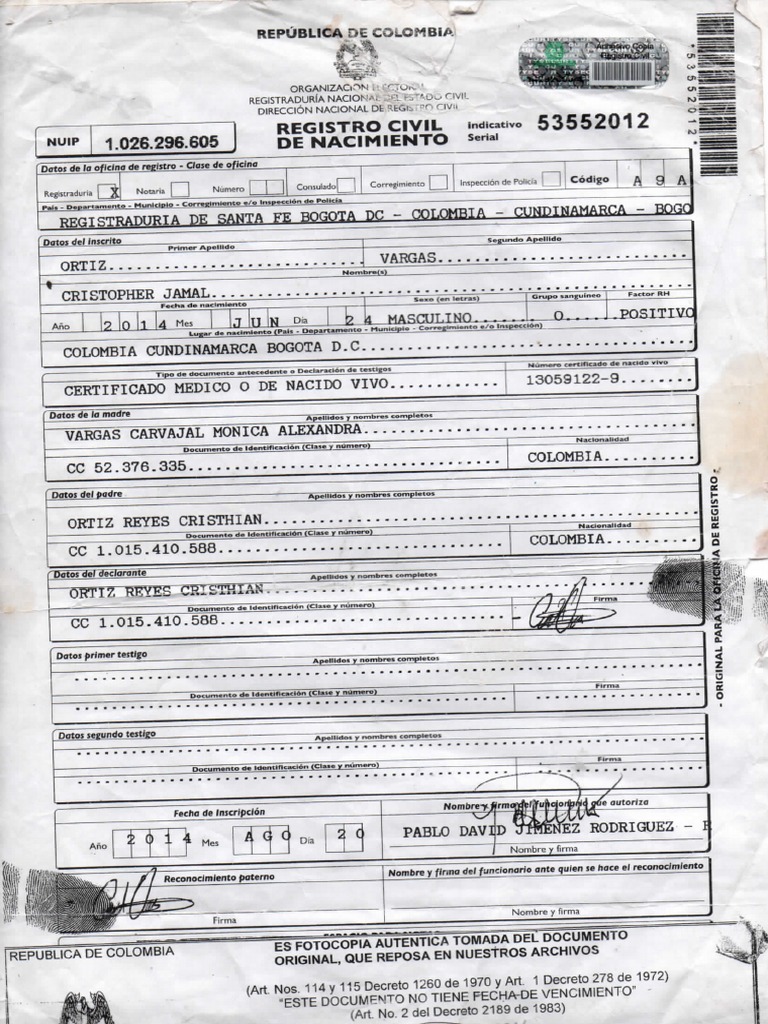 REPÚBLICA DE COLOMBIA
ORGANIZACIÓN ELECTORAL
REGISTRADURÍA NACIONAL DEL ESTADO CIVIL
DIRECCIÓN NACIONAL DE REGISTRO CIVIL
Adhesivo Copia
Registro Civil
*53552012*
NUIP 1.026.296.605
REGISTRO CIVIL DE NACIMIENTO
Indicativo Serial 53552012
Datos de la oficina de registro - Clase de oficina
Registraduría X Notaría Número Consulado Corregimiento Inspección de Policía Código A 9 A
País - Departamento - Municipio - Corregimiento e/o Inspección de Policía
REGISTRADURIA DE SANTA FE BOGOTA DC - COLOMBIA - CUNDINAMARCA - BOGO
Datos del inscrito
Primer Apellido Segundo Apellido
ORTIZ VARGAS
Nombre(s)
CRISTOPHER JAMAL
Fecha de nacimiento Sexo (en letras) Grupo sanguíneo Factor RH
Año 2014 Mes JUN Día 24 MASCULINO O POSITIVO
Lugar de nacimiento (País - Departamento - Municipio - Corregimiento e/o Inspección)
COLOMBIA CUNDINAMARCA BOGOTA D.C.
Tipo de documento antecedente o Declaración de testigos Número certificado de nacido vivo
CERTIFICADO MEDICO O DE NACIDO VIVO 13059122-9
Datos de la madre
Apellidos y nombres completos
VARGAS CARVAJAL MONICA ALEXANDRA
Documento de Identificación (Clase y número) Nacionalidad
CC 52.376.335 COLOMBIA
Datos del padre
Apellidos y nombres completos
ORTIZ REYES CRISTHIAN
Documento de Identificación (Clase y número) Nacionalidad
CC 1.015.410.588 COLOMBIA
Datos del declarante
Apellidos y nombres completos
ORTIZ REYES CRISTHIAN
Documento de Identificación (Clase y número) Firma
CC 1.015.410.588
Datos primer testigo
Apellidos y nombres completos
Documento de Identificación (Clase y número) Firma
Datos segundo testigo
Apellidos y nombres completos
Documento de Identificación (Clase y número) Firma
- ORIGINAL PARA LA OFICINA DE REGISTRO -
Fecha de Inscripción Nombre y firma del funcionario que autoriza
Año 2014 Mes AGO Día 20 PABLO DAVID JIMENEZ RODRIGUEZ - R
Nombre y firma
Reconocimiento paterno Nombre y firma del funcionario ante quien se hace el reconocimiento
Firma Nombre y firma
ESPACIO PARA NOTAS
REPUBLICA DE COLOMBIA
ES FOTOCOPIA AUTENTICA TOMADA DEL DOCUMENTO
ORIGINAL, QUE REPOSA EN NUESTROS ARCHIVOS
(Art. Nos. 114 y 115 Decreto 1260 de 1970 y Art. 1 Decreto 278 de 1972)
"ESTE DOCUMENTO NO TIENE FECHA DE VENCIMIENTO"
(Art. No. 2 del Decreto 2189 de 1983)